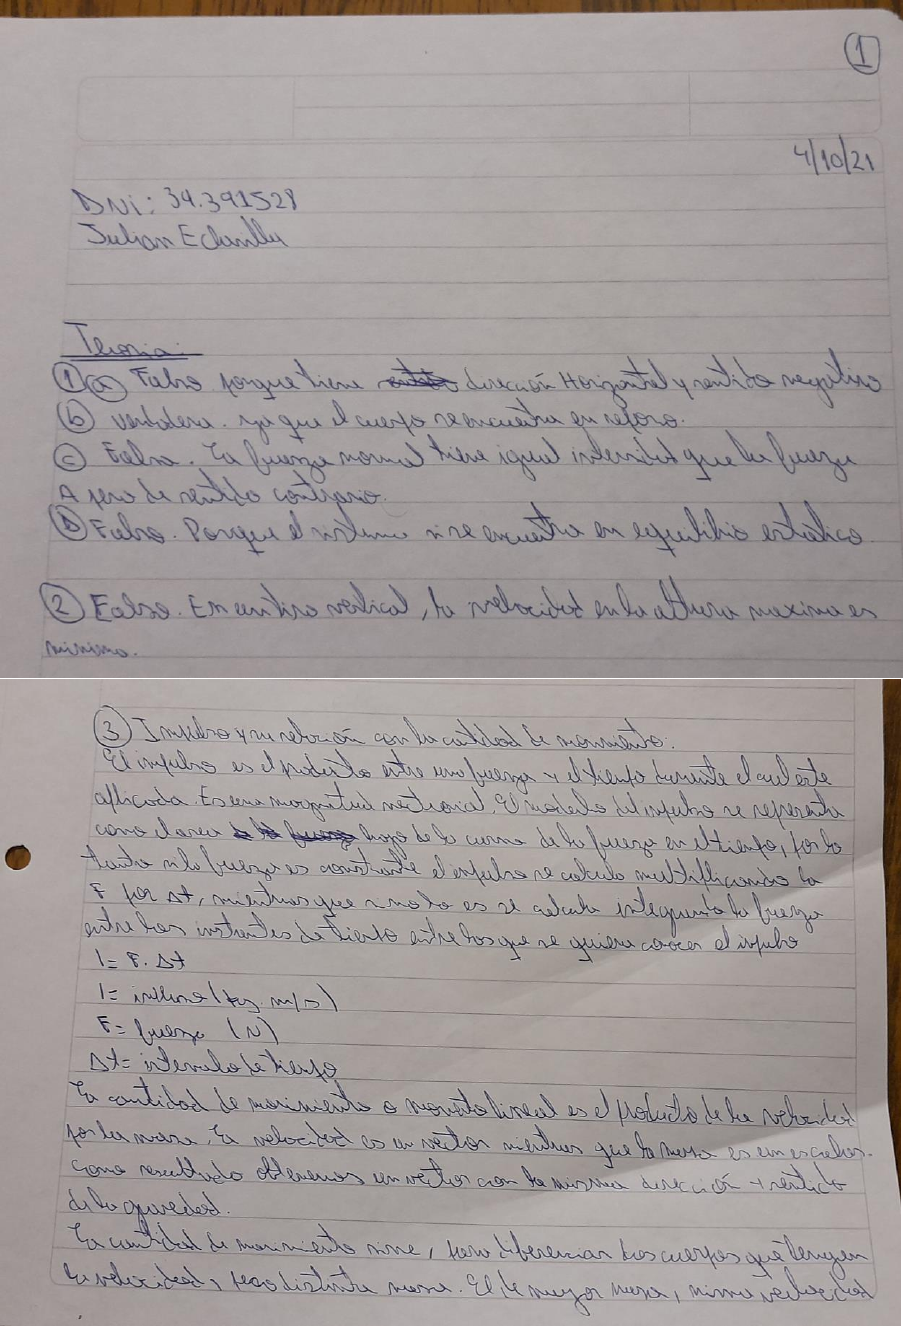 1
4/10/21
DNi: 34.391528
Julian
Teoria
1 a Falso porque tiene dirección Horizontal y sentido negativo
b verdadera. ya que el cuerpo se encuentra en reposo.
c Falsa. La fuerza normal tiene igual intensidad que la fuerza
A pero de sentido contrario.
D Falso. Porque el sistema si se encuentra en equilibrio estático.
2 Falso. En un tiro vertical, la velocidad en la altura maxima es
minima.
3 Impulso y su relación con la cantidad de movimiento.
El impulso es el producto entre una fuerza y el tiempo durante el cual este
aplicada. Es una magnitud vectorial. El modelo del impulso se representa
como el area bajo de la curva de la fuerza en el tiempo, por lo
tanto si la fuerza es constante el impulso se calcula multiplicando la
F por Δt, mientras que si no lo es se calcula integrando la fuerza
entre los instantes de tiempo entre los que se quiera conocer el impulso
I = F. Δt
I = impulso (kg. m/s)
F = fuerza (N)
Δt = intervalo de tiempo
La cantidad de movimiento o momento lineal es el producto de la velocidad
por la masa. La velocidad es un vector mientras que la masa es un escalar.
como resultado obtenemos un vector con la misma dirección y sentido
de la velocidad.
La cantidad de movimiento sirve, para diferenciar los cuerpos que tengan
la velocidad, pero distinta masa. El de mayor masa, misma velocidad